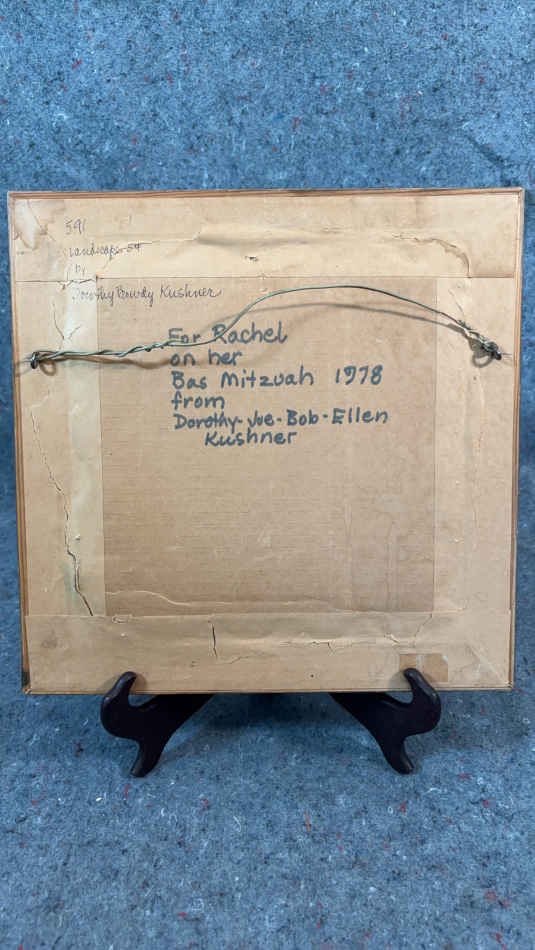 591
Landscape 54
by
Dorothy Bowdy Kushner
For Rachel
on her
Bas Mitzvah 1978
from
Dorothy-Joe-Bob-Ellen
Kushner